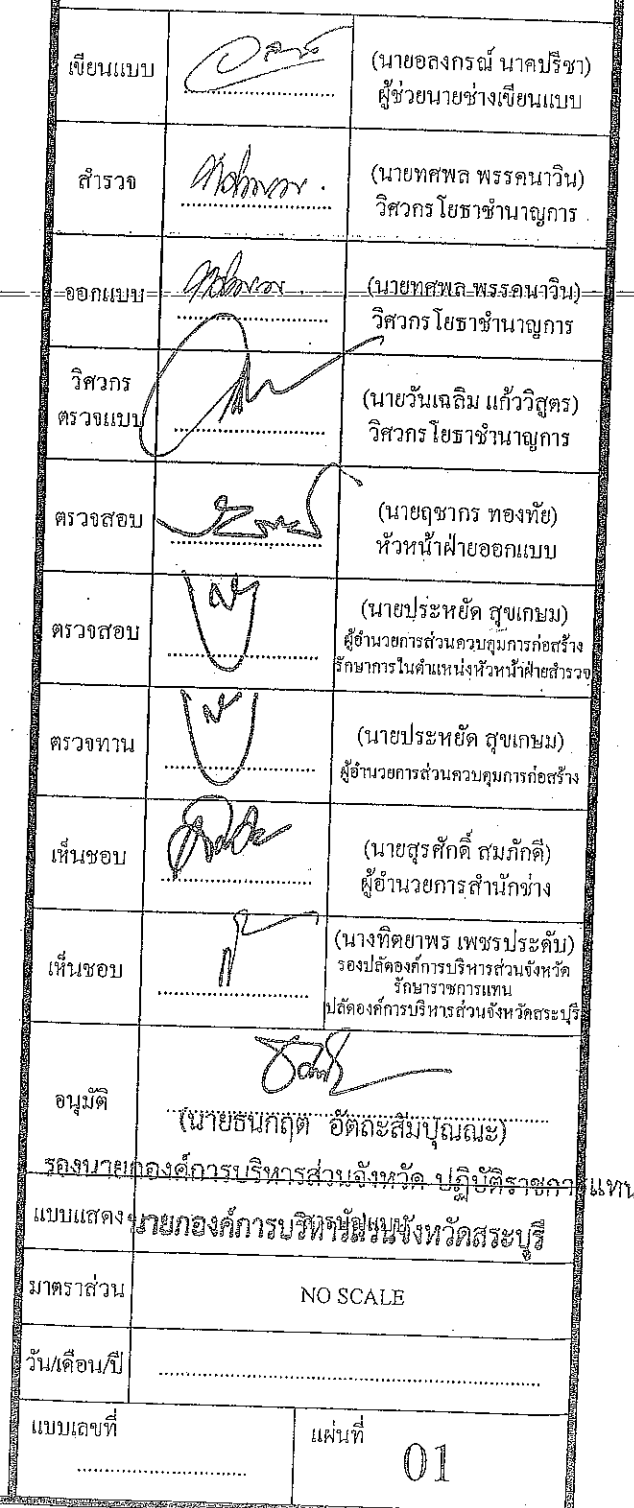 เขียนแบบ
(นายอลงกรณ์ นาคปรีชา)
ผู้ช่วยนายช่างเขียนแบบ
สำรวจ
(นายทศพล พรรคนาวิน)
วิศวกรโยธาชำนาญการ
ออกแบบ
(นายทศพล พรรคนาวิน)
วิศวกรโยธาชำนาญการ
วิศวกร
ตรวจแบบ
(นายวันเฉลิม แก้ววิสูตร)
วิศวกรโยธาชำนาญการ
ตรวจสอบ
(นายฤชากร ทองทัย)
หัวหน้าฝ่ายออกแบบ
ตรวจสอบ
(นายประหยัด สุขเกษม)
ผู้อำนวยการส่วนควบคุมการก่อสร้าง
รักษาการในตำแหน่งหัวหน้าฝ่ายสำรวจ
ตรวจทาน
(นายประหยัด สุขเกษม)
ผู้อำนวยการส่วนควบคุมการก่อสร้าง
เห็นชอบ
(นายสุรศักดิ์ สมภักดี)
ผู้อำนวยการสำนักช่าง
เห็นชอบ
(นางทิตยาพร เพชรประดับ)
รองปลัดองค์การบริหารส่วนจังหวัด
รักษาราชการแทน
ปลัดองค์การบริหารส่วนจังหวัดสระบุรี
อนุมัติ
(นายธนกฤต อัตถะสัมปุณณะ)
รองนายกองค์การบริหารส่วนจังหวัด ปฏิบัติราชการแทน
แบบแสดง
นายกองค์การบริหารส่วนจังหวัดสระบุรี
มาตราส่วน
NO SCALE
วัน/เดือน/ปี
แบบเลขที่
แผ่นที่
01